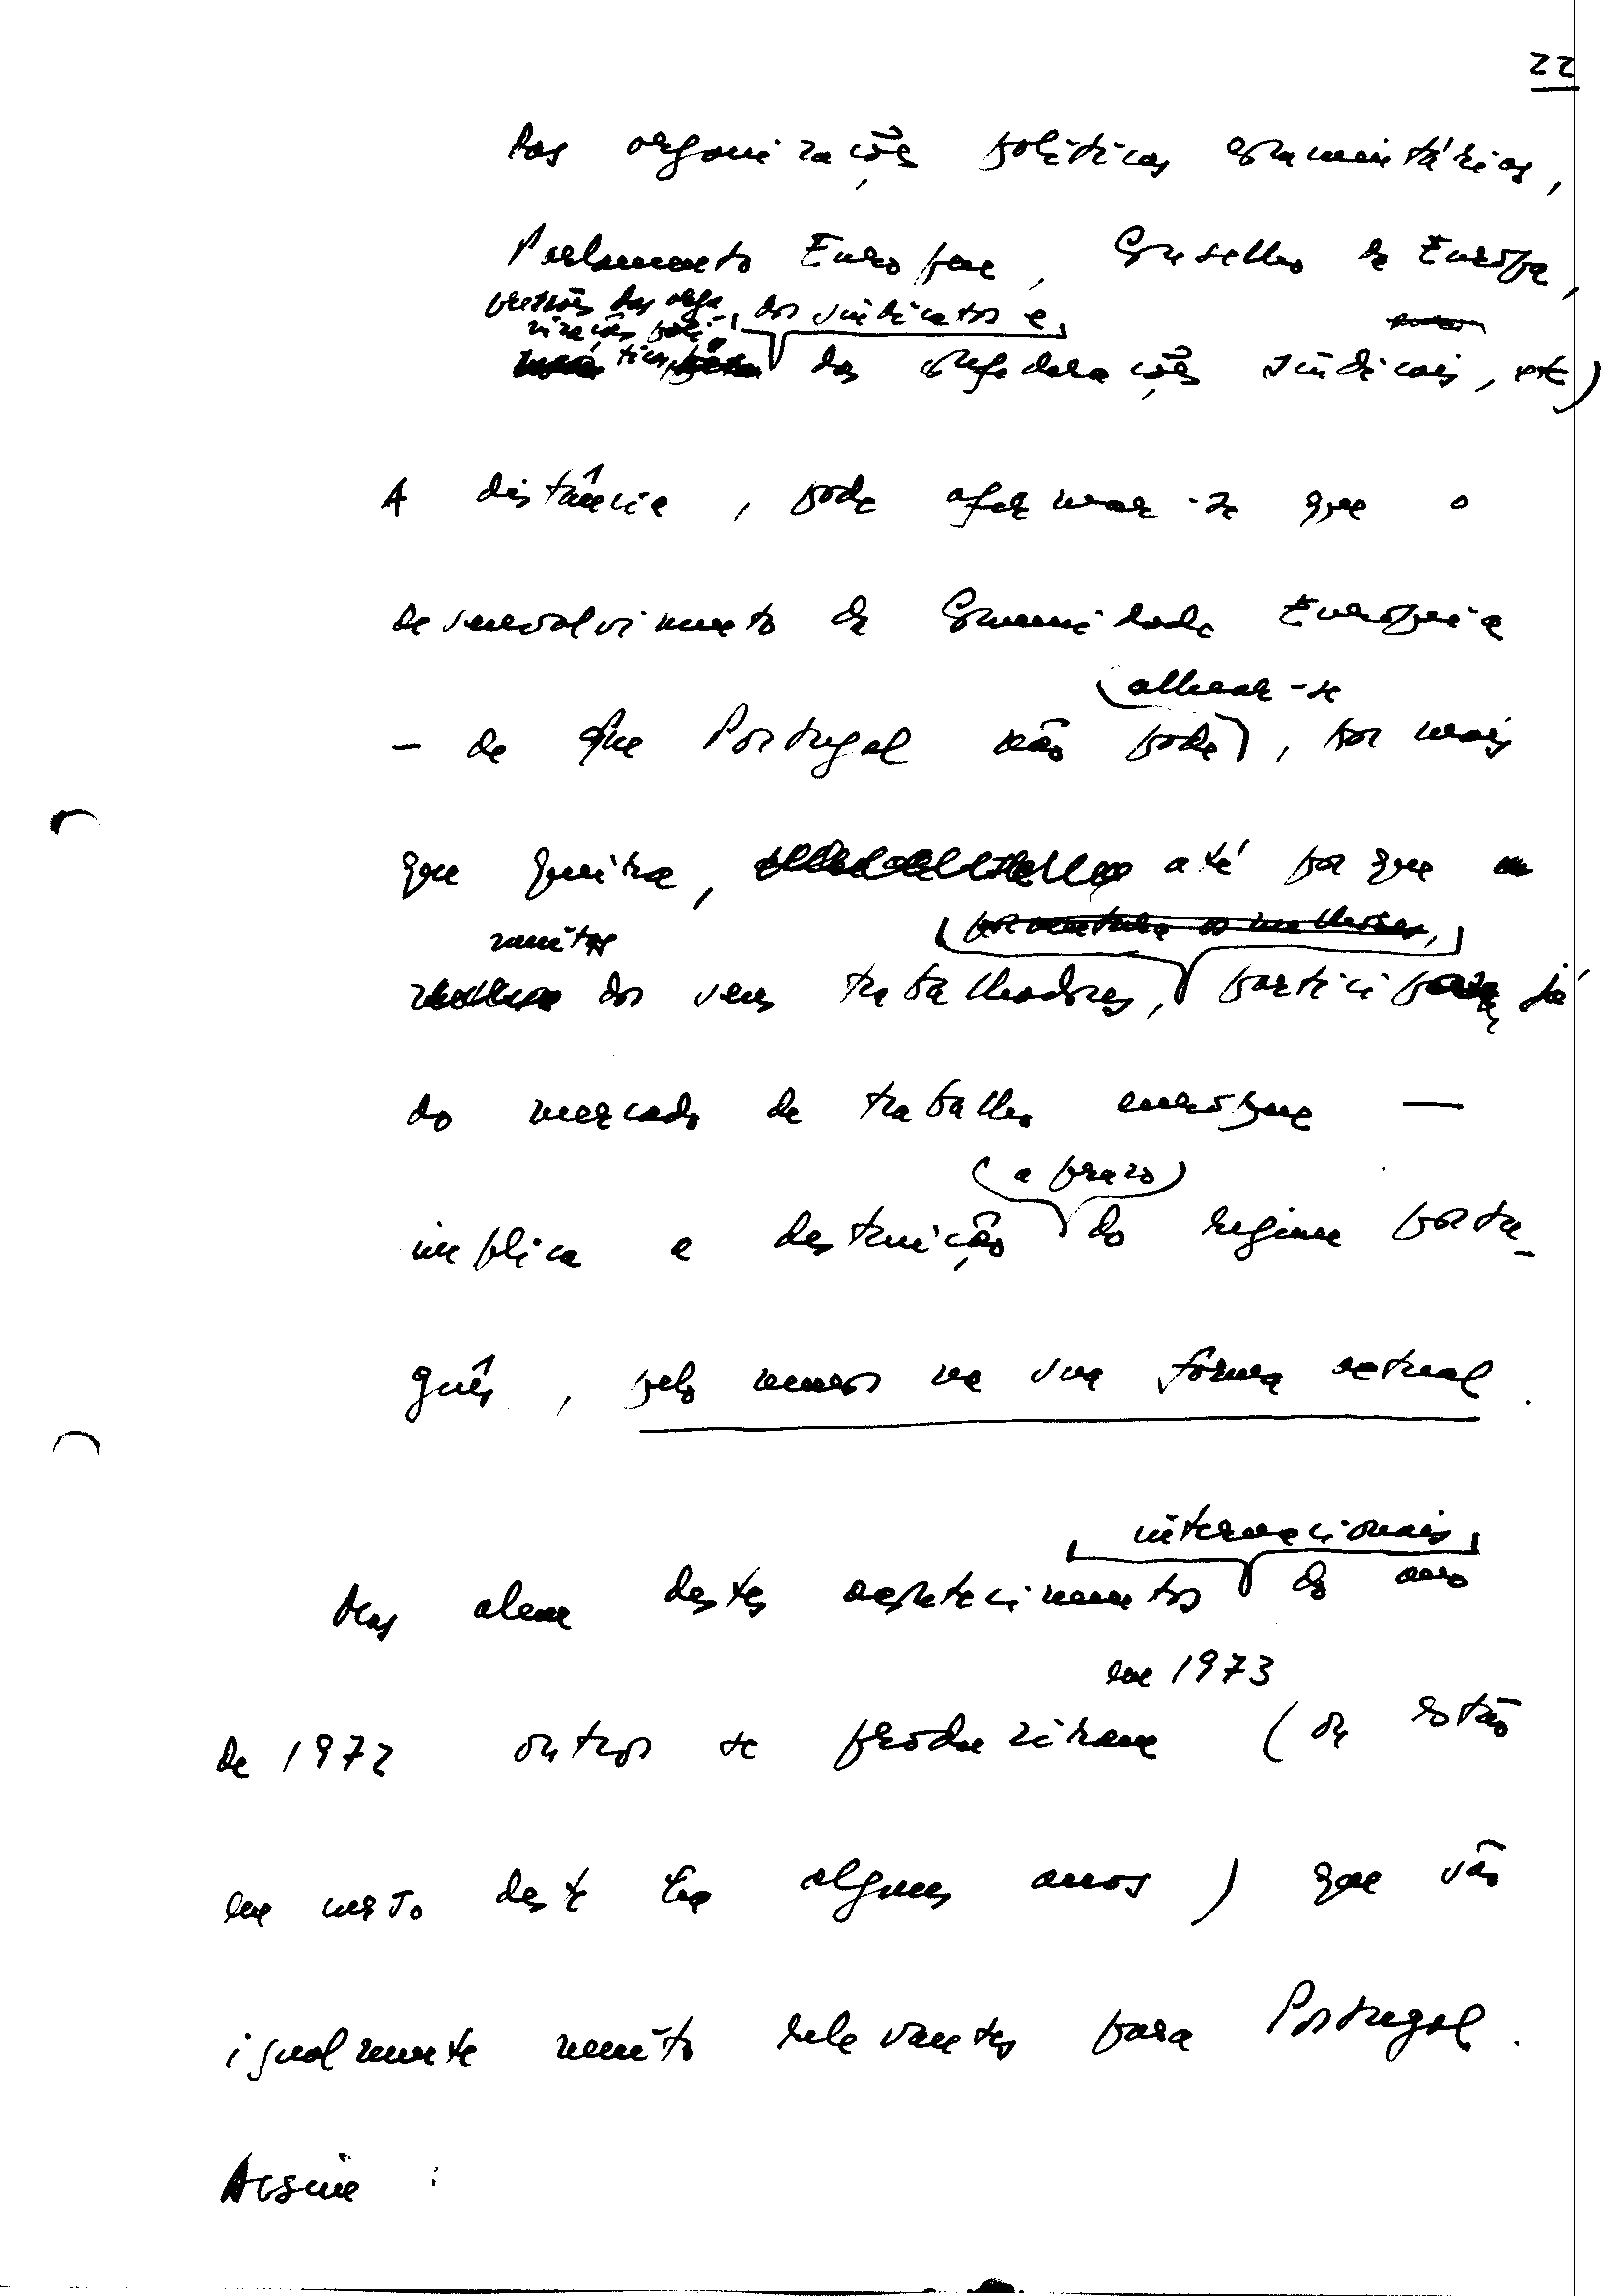 22
das organizações políticas comunitárias,
Parlamento Europeu, Conselho da Europa,
pressões das orga
nizações polí-
ticas, dos sindicatos e
das confederações sindicais, etc)
A distância, pode afirmar-se que o
desenvolvimento da Comunidade Europeia
alhear-se
— de que Portugal não pode, por mais
que queira, até porque
muitos
dos seus trabalhadores, participam já
porventura os melhores,
do mercado de trabalho europeu —
(a prazo)
implica a destruição do regime portu-
guês, pelo menos na sua forma actual.
internacionais
Mas além destes acontecimentos do ano
em 1973
de 1972 outros se produziram (ou estão
em curso desde há alguns anos) que são
igualmente muito relevantes para Portugal.
Assim: